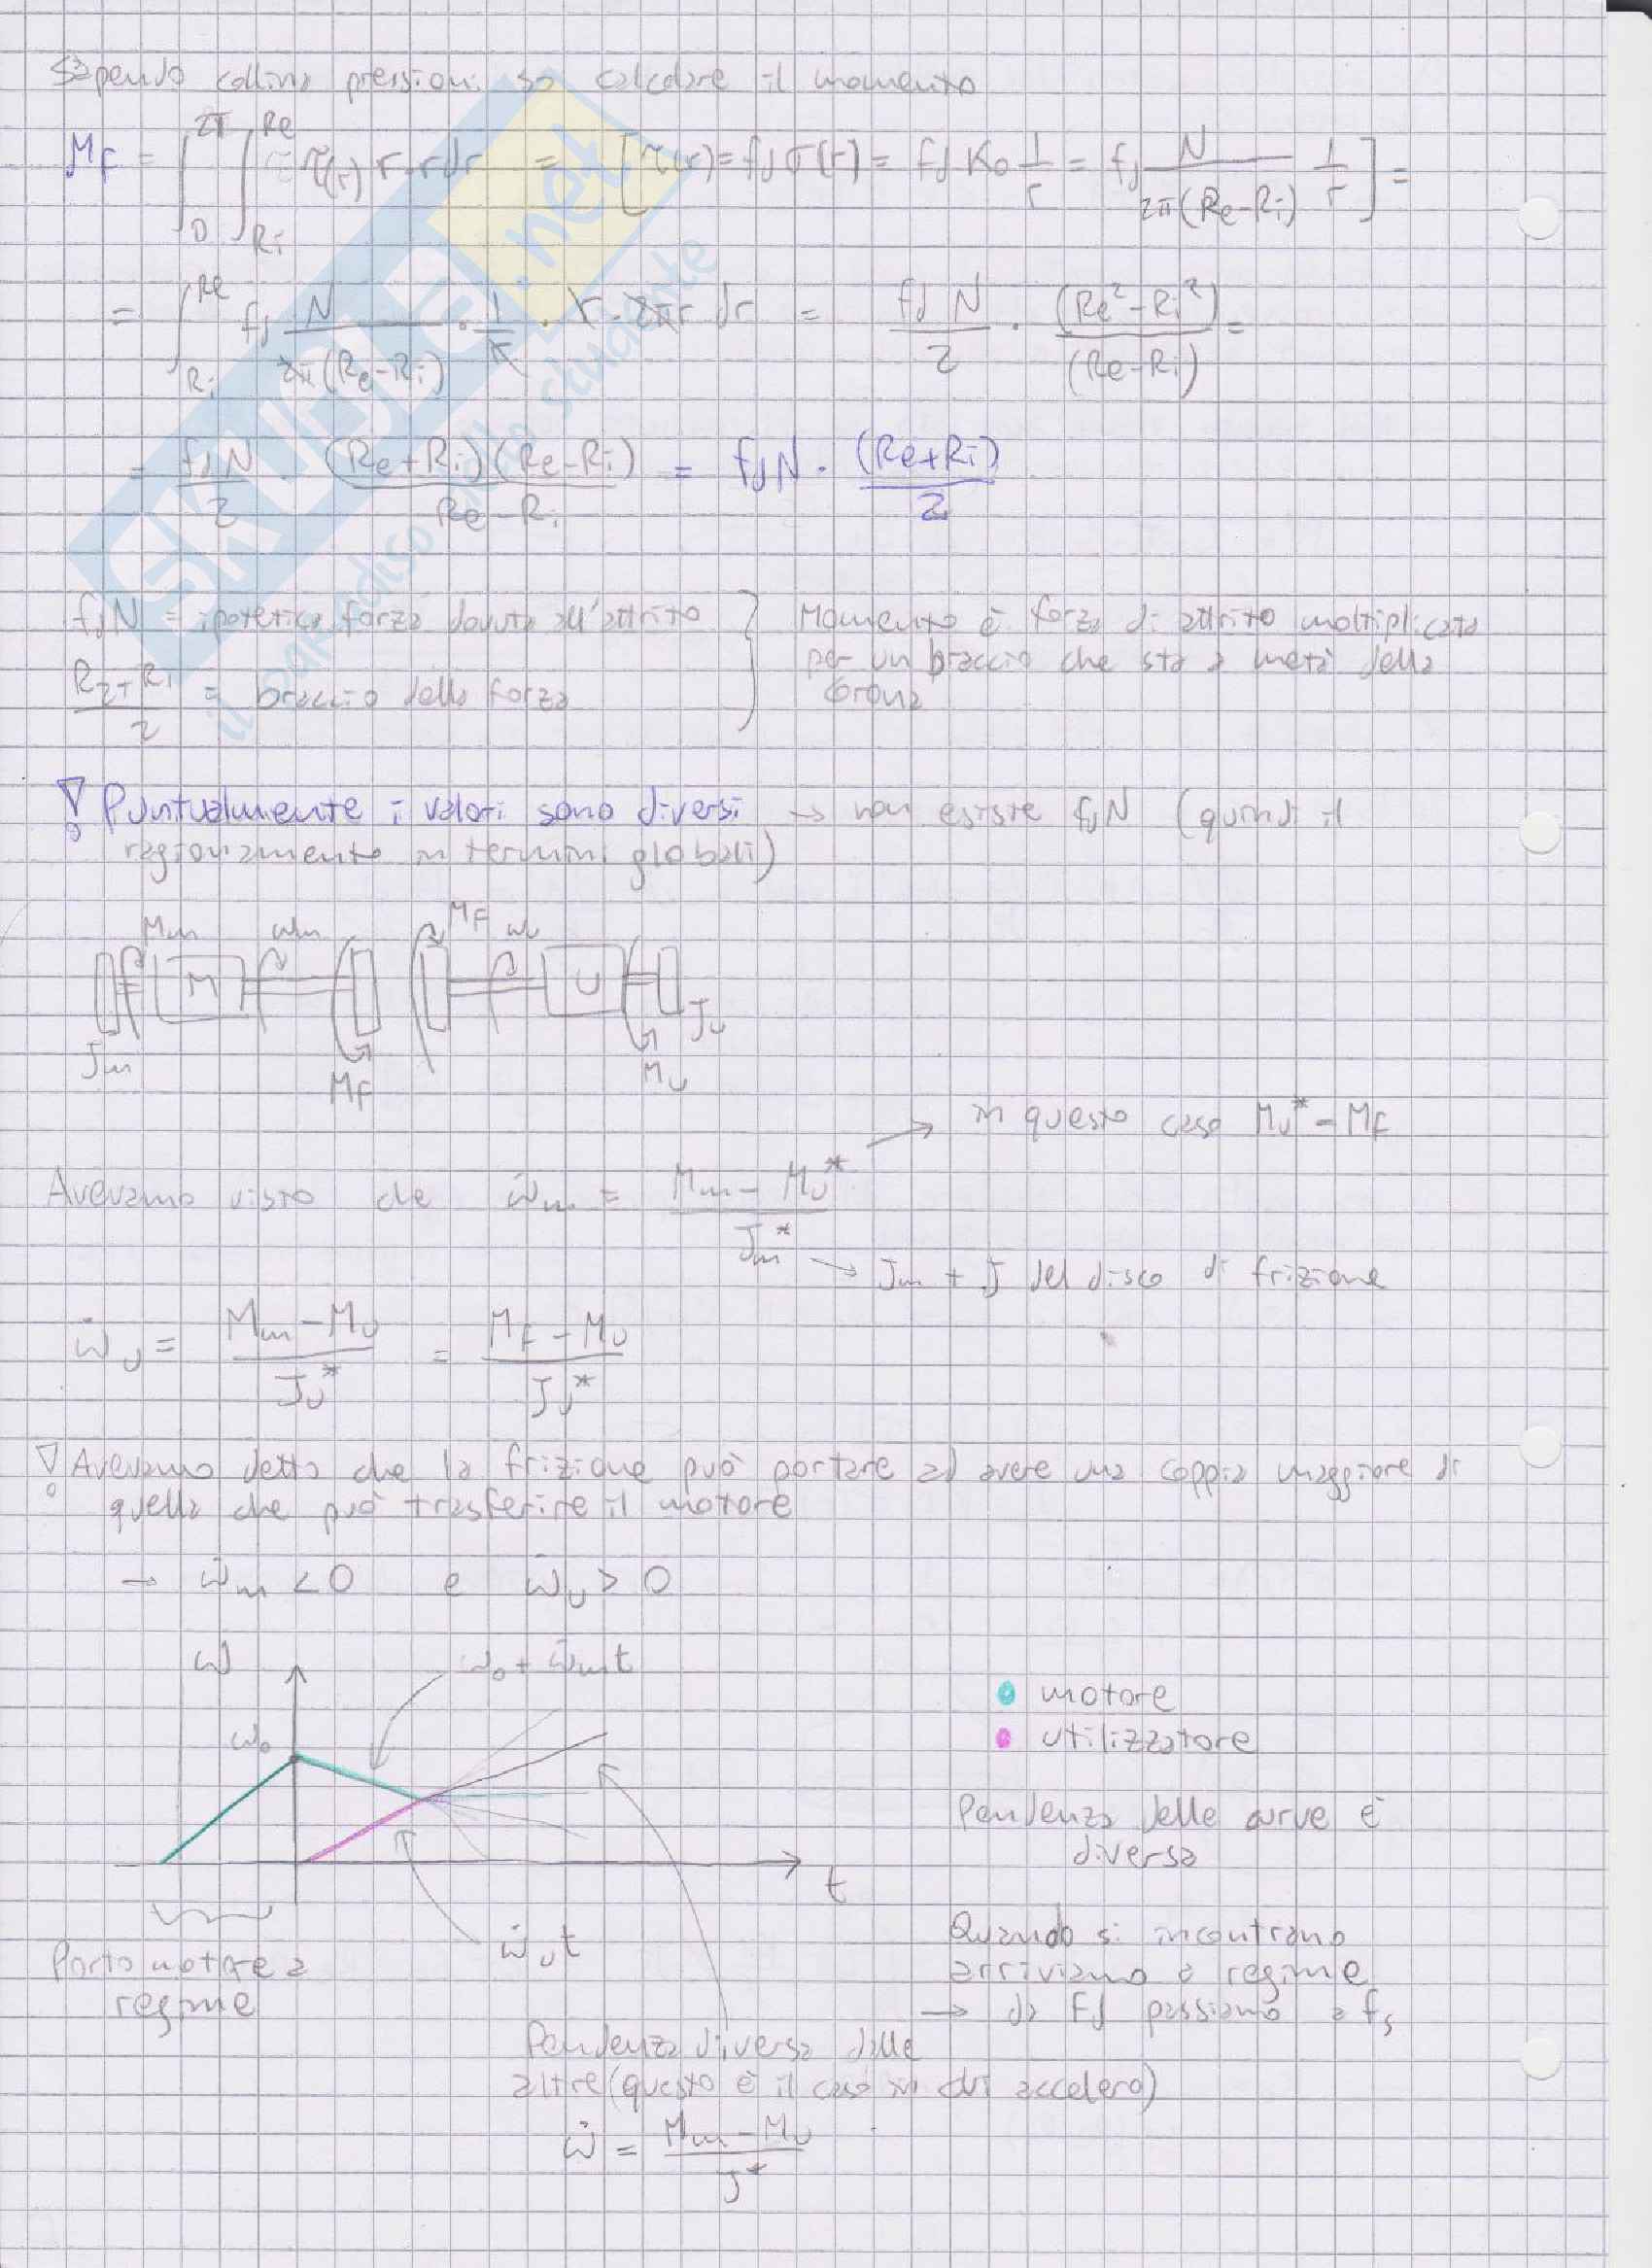 Sapendo coll'ina pressioni so calcolare il momento
M_F = ∫_0^{2π} ∫_{Ri}^{Re} τ(r) r·r dr = [τ(r) = fd σ(r) = fd K0 1/r = fd N/(2π(Re-Ri)) 1/r] =
= ∫_{Ri}^{Re} fd N/(2π(Re-Ri)) · 1/r · r · 2πr dr = fd N/2 · (Re²-Ri²)/(Re-Ri) =
= fd N/2 (Re+Ri)(Re-Ri)/(Re-Ri) = fd N · (Re+Ri)/2
fd N = ipotetica forza dovuta all'attrito } Momento è forza di attrito moltiplicata
per un braccio che sta a metà della
corona
(R2+R1)/2 = braccio della forza
! Puntualmente i valori sono diversi → non esiste fd N (quindi il
ragionamento in termini globali)
Mm ωm MF ωu
M U
Jm MF Mu Ju
in questo caso Mu* = MF
Avevamo visto che ω̇m = (Mm - Mu*)/Jm*
→ Jm + J del disco di frizione
ω̇u = (Mm - Mu)/Ju* = (MF - Mu)/Ju*
! Avevamo detto che la frizione può portare ad avere una coppia maggiore di
quella che può trasferire il motore
→ ω̇m < 0 e ω̇u > 0
ω ω0 + ω̇m t
motore
ω0
utilizzatore
Pendenza delle curve è
diversa
t
ω̇u t
Quando si incontrano
arriviamo a regime
→ da Fd passiamo a fs
Porto motore a
regime
Pendenza diversa dalle
altre (questo è il caso in cui accelero)
ω̇ = (Mm - Mu)/J*
SKUOLA.net
il paradiso dello studente